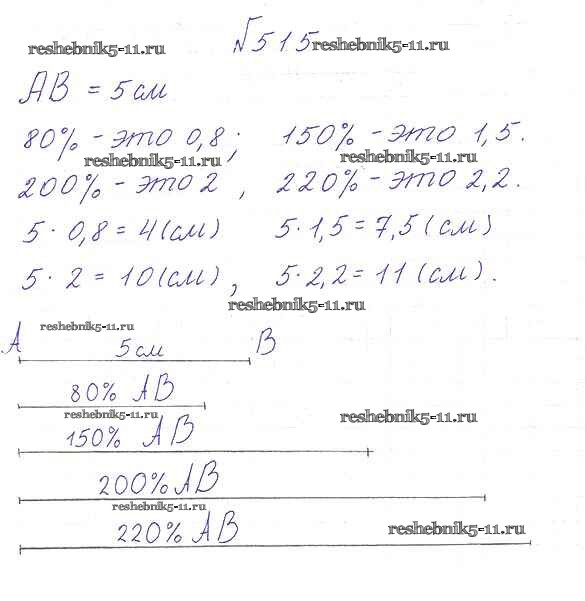 №515
reshebnik5-11.ru reshebnik5-11.ru
AB = 5 см
80% - это 0,8; 150% - это 1,5.
reshebnik5-11.ru reshebnik5-11.ru
200% - это 2, 220% - это 2,2.
5 · 0,8 = 4 (см) 5 · 1,5 = 7,5 (см)
5 · 2 = 10 (см), 5 · 2,2 = 11 (см).
reshebnik5-11.ru
reshebnik5-11.ru
A 5 см B
80% AB
reshebnik5-11.ru reshebnik5-11.ru
150% AB
200% AB
reshebnik5-11.ru
220% AB reshebnik5-11.ru